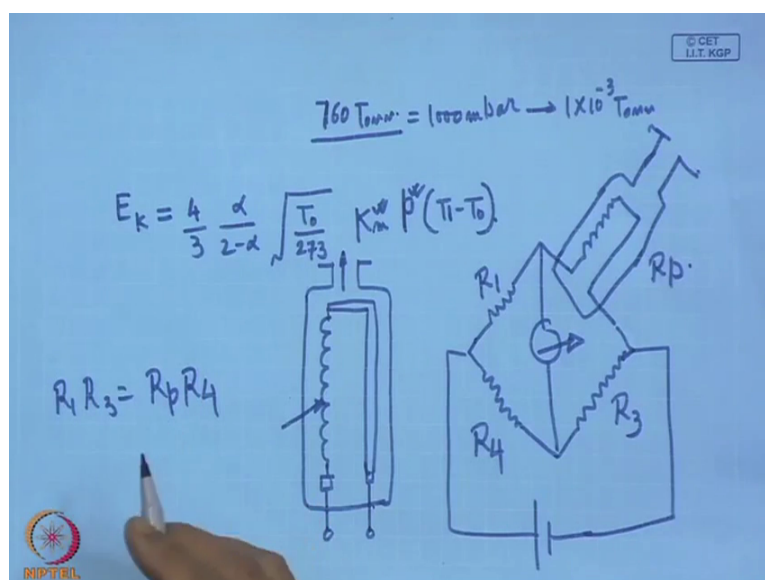 © CET
I.I.T. KGP
760 Torr. = 1000 mbar → 1×10⁻³ Torr
E_K = 4/3 α/2-α √T₀/273 K_m^w p^w (T₁-T₀).
R₁
Rp.
R₁ R₃ = Rp R₄
R₄
R₃
NPTEL